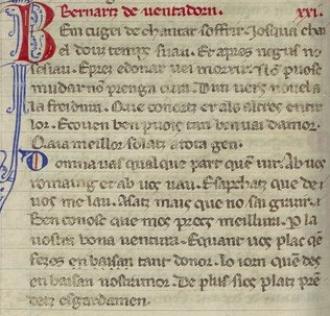 Bernartz de uentadorn. XXI.
BEm cugei de chantar soffrir. Iosqua chai
el dous temps suau. Et apres negus no
sesiau. E prez e donar uei morrir. No puosc
mudar no prenga cura. Dun uers nouel a
la freidura. Que conortz er als altres entre
lor. E couen ben puois tan ben uai damor.
Qaia meillor solatz a tota gen.
Domna uas qualque part quem uir. Ab uos
romaing et ab uos uau. E sapchatz que de
uos me lau. Asatz mais que no sai grazir.
Ben conosc que mos pretz meillura. Per la
uostra bona uentura. E quant uos plac qem
fezes en baisan tant donor. Lo iorn quem des
en baisan uostramor. De plus sieus platz pren
detz esgardamen.